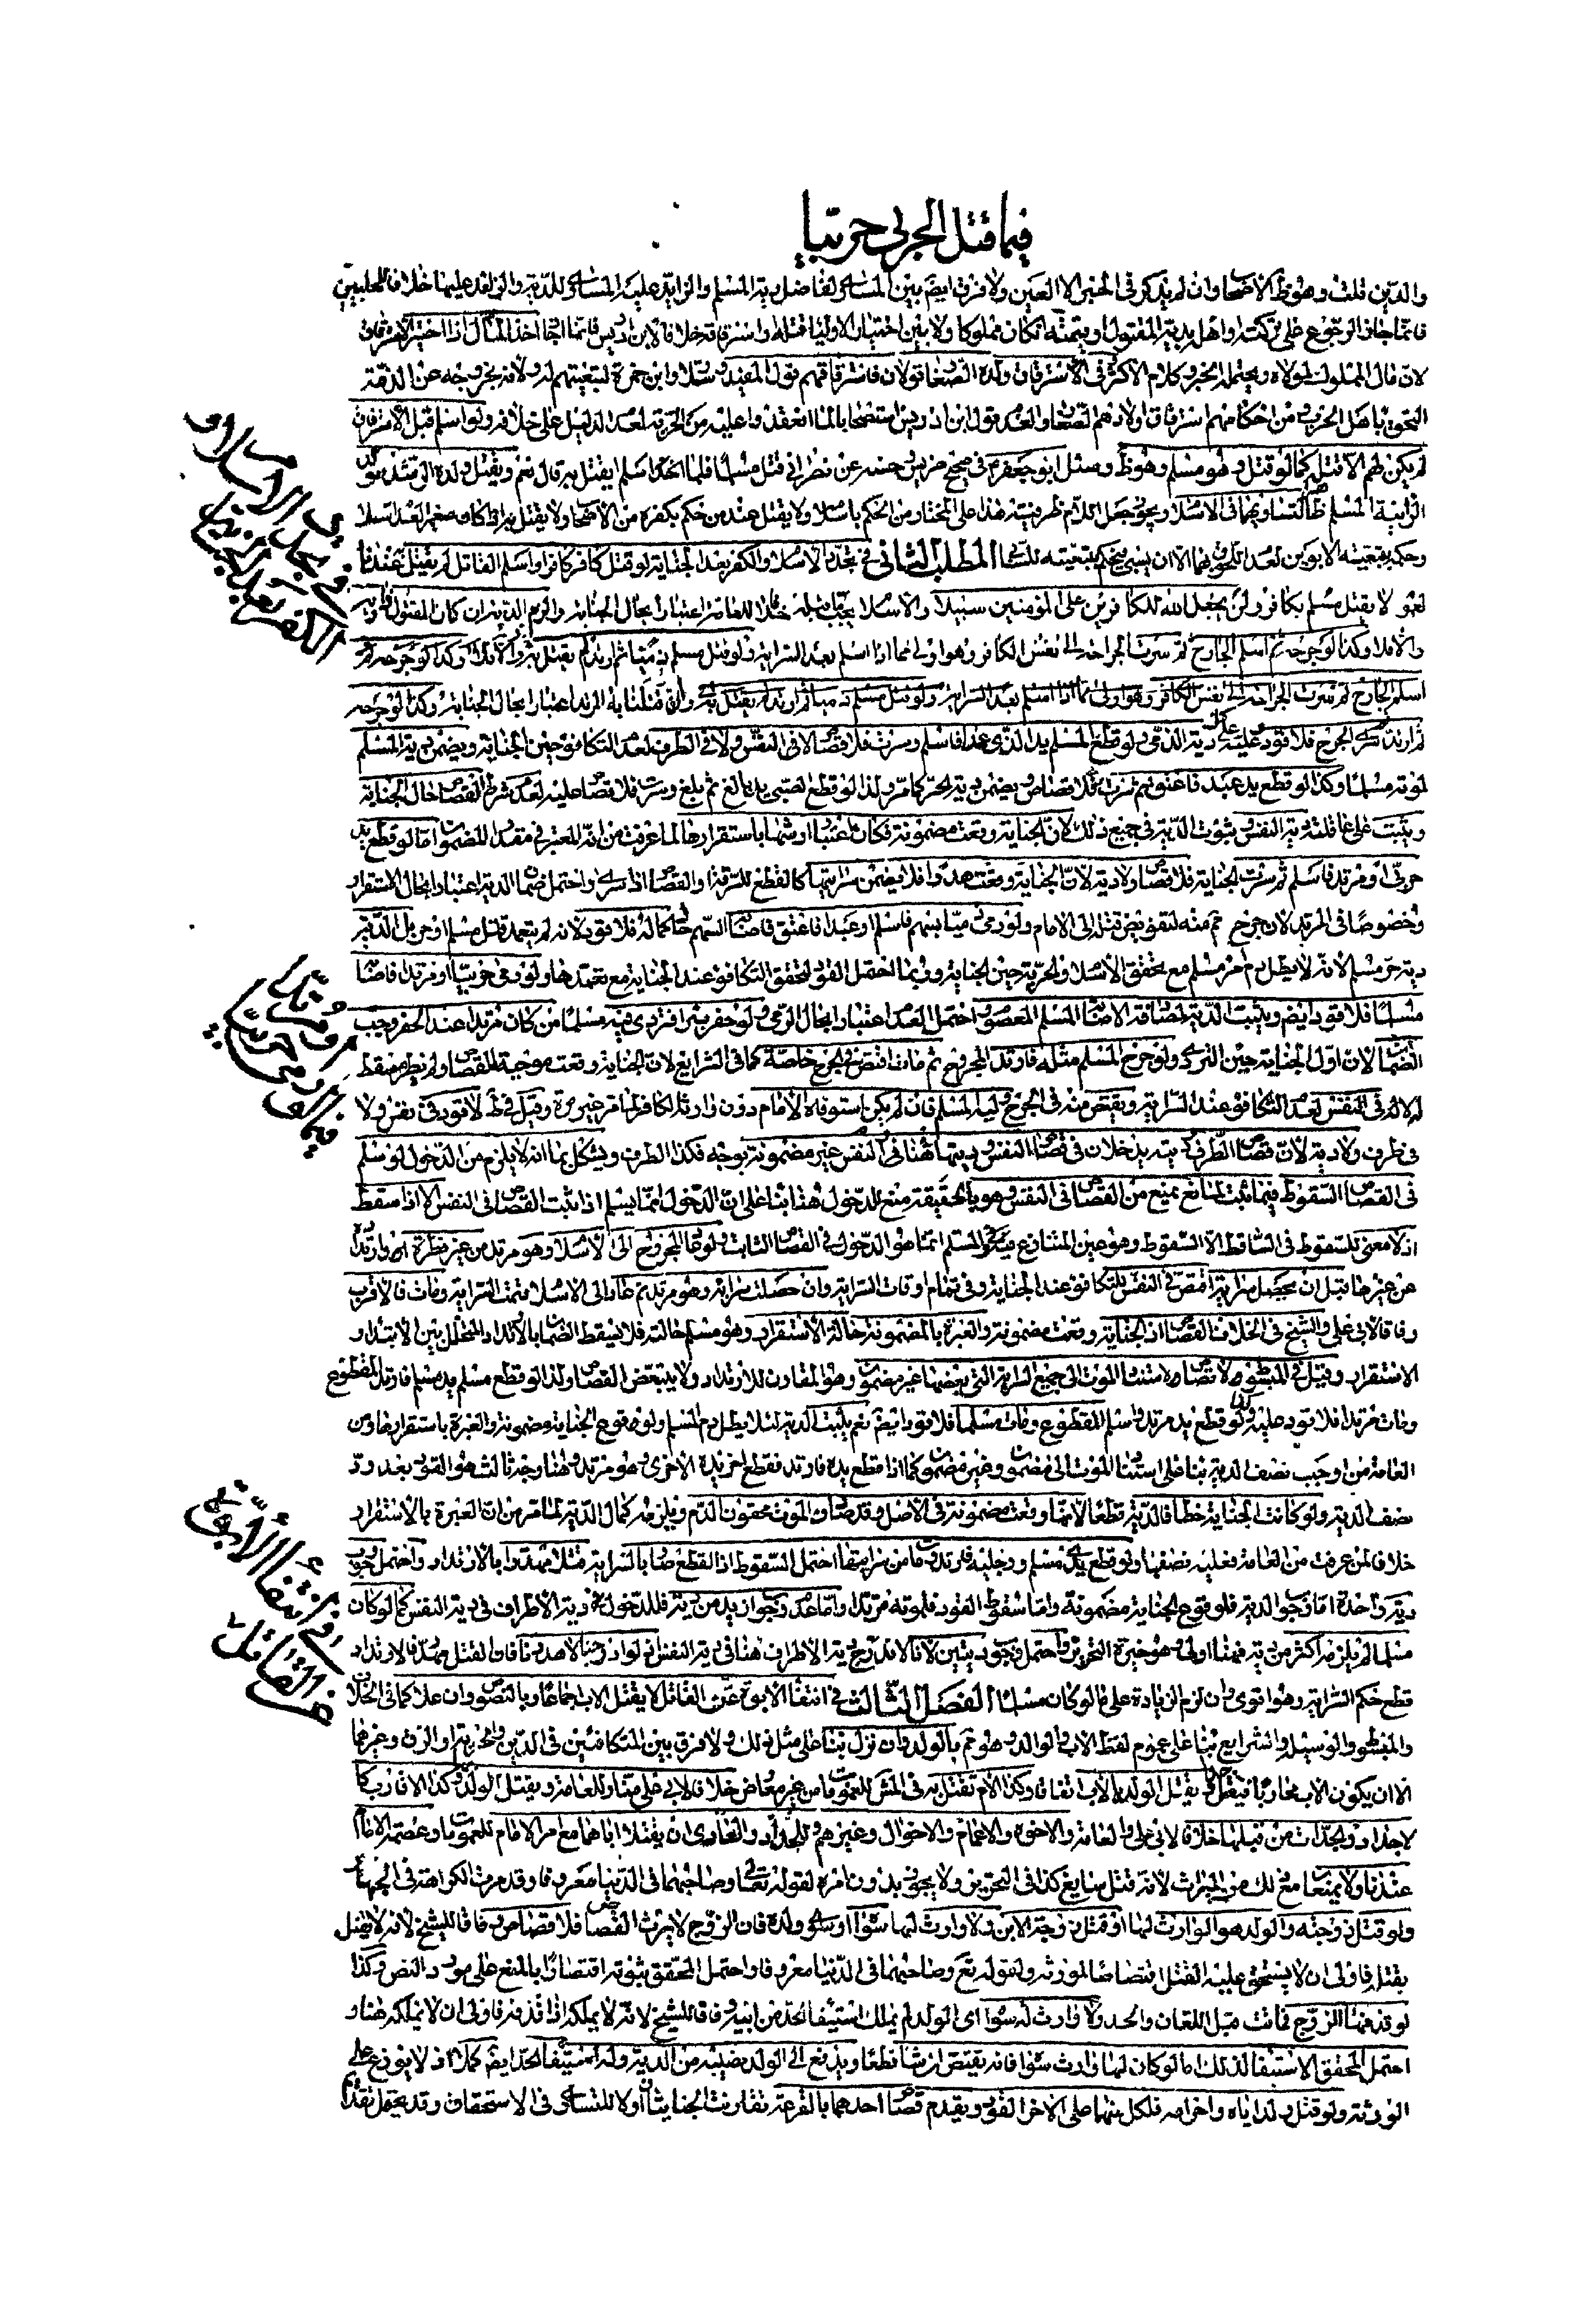 فيما قتل الحربي حربيا
والدين قلت وهو ظ الاصحاب وان لم يذكر في الخبر الا العين ولا فرق ايضم بين المساوي لفاضل دية المسلم والزايد عليه المساوي للدية والزايد عليها خلافا للحلبيين
فانما جاز الرجوع على تركته او اهله بدية المقتول او بقيمته ان كان مملوكا ولا بين اختيار الاوليا قتله واسترقاقه خلافا لابن ادريس فانما اجاز اخذ المال اذا اختير استرقاقه
لان مال المملوك لمولاه ويحتمله الخبر وكلام الاكثر وفي الاسترقاق ولده الصغار قولان فاسترقاقهم قول المفيد وسلار وابن حمزة لتبعيتهم له ولانه بخروجه عن الذمة
التحق باهل الحرب ومن احكامهم استرقاق اولادهم الصغار والعدم قول ابن ادريس استصحابا لما انعقدوا عليه من الحرية لعدم الدليل على خلافه ولو اسلم قبل الاسترقاق
لم يكن لهم الا قتله كما لو قتل وهو مسلم وهو ظ وسئل ابو جعفر في صحيح ضريس وحسنه عن نصراني قتل مسلما فلما اخذ اسلم يقتل به قال نعم ويقتل ولده المرتد
وحكم بتبعيته الابوين لعد اللحوق بهما الا ان يسبى فيحكم بتبعيته للسابي المطلب الثاني في تجدد الاسلام والكفر بعد الجناية لو قتل كافر كافرا واسلم القاتل لم يقتل عندنا
لعموم لا يقتل مسلم بكافر ولن يجعل الله للكافرين على المؤمنين سبيلا والاسلام يجب ما قبله خلافا للعامة اعتبارا بحال الجناية والزم الدية ان كان المقتول ذا دية
والا فلا وكذا لو جرحه ثم اسلم الجارح ثم سرت الجراحة الى نفس الكافر وهو اولى مما اذا اسلم بعد السراية ولو قتل مسلم ذميا ثم ارتد لم يقتل به وان قتلنا وكذا لو جرحه ثم
اسلم الجارح ثم سرت الجراحة الى نفس الكافر وهو اولى مما اذا اسلم بعد السراية ولو قتل مسلم ذميا ثم ارتد لم يقتل به وان قتلنا به المرتد اعتبارا بحال الجناية وكذا لو جرحه
ثم ارتد ثم سرى الجرح فلا قود عليه بل عليه دية الذمي ولو قطع المسلم يد الذمي عمدا فاسلم وسرت فلا قصاص لا في النفس ولا في الطرف لعدم التكافؤ حين الجناية ويضمن دية المسلم
لموته مسلما وكذا لو قطع يد عبد فاعتق ثم سرت فلا قصاص ويضمن دية الحر كما مر ولذا لو قطع الصبي يد بالغ ثم بلغ وسرت فلا قصاص عليه لعدم شرط القصاص حال الجناية
ويثبت على عاقلته دية النفس وثبوت الدية في جميع ذلك لان الجناية وقعت مضمونة فكان الاعتبار ارشها باستقرارها لما عرفت من انه المعتبر في مقدار المضمون اما لو قطع يد
حربي او مرتد فاسلم ثم سرت الجناية فلا قصاص ولا دية لان الجناية وقعت هدرا فلا يضمن سرايتها كالقطع للسرقة والقصاص اذا سرى واحتمل ضمان الدية اعتبارا بحال الاستقرار
وخصوصا في المرتد لان جرحه محرم منه لتفويض قتله الى الامام ولو رمى ذميا بسهم فاسلم او عبدا فاعتق فاصابه السهم حال كماله فلا قود لانه لم يتعمد قتل مسلم او حر بل الدية
دية حر مسلم لانه لا يطل دم امرء مسلم مع تحقق الاسلام والحرية حين الجناية وربما احتمل القود لتحقق التكافؤ عند الجناية مع تعمدها ولو رمى حربيا او مرتدا فاصابه
مسلما فلا قود ايضم ويثبت الدية لمصادفة الاصابة المسلم المعصوم واحتمل العدم اعتبارا بحال الرمي ولو حفر بئرا فتردى فيه مسلم من كان مرتدا عند الحفر وجب
الضمان لان اول الجناية حين التردي ولو جرح المسلم مثله فارتد المجروح ثم مات اقتص في الجرح خاصة كما في الشرايع لان الجناية وقعت موجبة للقصاص ولم يطرء مسقط
له لا له في النفس لعدم التكافؤ عند السراية ويقتص منه في الجرح وليه المسلم فان لم يكن استوفاه الامام دون وارثه الكافر لما مر غير مرة وقيل في ط لا قود في نفس ولا
في طرف ولا دية لان قصاص الطرف وديته يدخلان في قصاص النفس وديتها وهنا في النفس غير مضمونة بوجه فكذا الطرف ويشكل بما انه لا يلزم من الدخول لو سلم
في القصاص السقوط فيما ثبت لمانع يمنع من القصاص في النفس وهو بالحقيقة منع للدخول هنا بناء على ان الدخول انما يسلم اذا ثبت القصاص في النفس الا اذا سقط
اذ لا معنى للسقوط في الساقط الا السقوط وهو عين المتنازع فيه والمسلم انما هو الدخول في القصاص الثابت ولو عاد المجروح الى الاسلام وهو مرتد من غير فطرة او ارتداد
عن غيرها قبل ان يحصل سراية اقتص في النفس للتكافؤ عند الجناية وفي تمام اوقات السراية وان حصلت سراية وهو مرتد ثم عاد الى الاسلام وتمت السراية ومات فالاقرب
وفاقا لابي علي والشيخ في الخلاف القصاص اذ الجناية وقعت مضمونة والعبرة بالمضمونة حالة الاستقرار وهو مسلم حالته فلا يسقط الضمان بالارتداد المتخلل بين الابتداء و
الاستقرار وقيل في المبسوط لا قصاص لاستناد الموت الى جميع السراية التي بعضها غير مضمون وهو المقارن للارتداد ولا يتبعض القصاص ولذا لو قطع مسلم يد مسلم فارتد المقطوع
ومات مرتدا فلا قود عليه وكذا لو قطع يد مرتد واسلم المقطوع ومات مسلما فلا قود ايضم نعم يثبت الدية لئلا يطل دم المسلم ولوقوع الجناية مضمونة والعبرة باستقرارها ومن
العامة من اوجب نصف الدية بناء على استناد الموت الى مضمون وغير مضمون كما اذا قطع يده فارتد فقطع اخر يده الاخرى وهو مرتد وهنا وجه ثالث هو القود بعد رد
نصف الدية ولو كانت الجناية خطا فالدية قطعا لانها وقعت مضمونة في الاصل وقد صادف الموت محقون الدم ويلزمه كمال الدية لما مر من ان العبرة بالاستقرار
خلافا لمن عرفت من العامة فعليه نصفها ولو قطع يدي مسلم ورجليه فارتد ومات من سرايتها احتمل السقوط اذ القطع صار بالسراية قتلا مهدرا بالارتداد واحتمل وجوب
دية واحدة اما وجوب الدية فلوقوع الجناية مضمونة واما سقوط القود فلموته مرتدا واما عدم وجوب ازيد من دية فللدخول دية الاطراف في دية النفس كما لو كان
مسلما لم يلزمه اكثر من دية فهنا اولى وهو خيرة التحرير واحتمل وجوب ديتين لانا لا ندرج دية الاطراف هنا في دية النفس لو اوجبنا لاهدرناها فان القتل مهدر فالارتداد
قطع حكم السراية وهو اقوى وان لزم الزيادة على ما لو كان مسلما الفصل الثالث في انتفاء الابوة عن القاتل لا يقتل الاب اجماعا وبالنصوص وان علا كما في الخلاف
والمبسوط والوسيلة والشرايع بناء على عموم لفظ الاب والوالد وهو مم بالولد وان نزل بناء على مثل ذلك ولا فرق بين المتكافئين في الدين والحرية او الرق وغيرهما
الا ان يكون الاب محاربا فيقتل حدا يقتل الولد بالاب اتفاقا وكذا الام تقتل به في المش للعمومات من غير معارض خلافا لابي علي منا وللعامة ويقتل الولد وكذا الاقارب كا
لاجداد والجدات من قبلها خلافا لابي علي والعامة والاخوة والاعمام والاخوال وغيرهم وللجلاد والغازي ان يقتلا اباهما مع امر الامام للعمومات وعصمة الامام
عندنا ولا يمنعا مع ذلك من الميراث لانه قتل سايغ كذا في التحرير ولا يجوز بدون امره لقوله تعالى وصاحبهما في الدنيا معروفا وقد مرت الكراهة في الجهاد
ولو قتل زوجته والولد هو الوارث لها او قتل زوجة الابن ولا وارث لها سواه او سوى ولده فان الزوج لا يرث القصاص فلا قصاص وفاقا للشيخ لانه لا يقتل
بقتله فاولى ان لا يستحق عليه القتل اقتصاصا لمورثه ولقوله تع وصاحبهما في الدنيا معروفا واحتمل المحقق ثبوته اقتصارا بالمنع على مورد النص وكذا
لو قذفها الزوج فماتت قبل اللعان والحد ولا وارث له سوا اى الولد لم يملك استيفاء الحد من ابيه وفاقا للشيخ لانه لا يملكه اذا قذفه فاولى ان لا يملكه هنا و
احتمل المحقق الاستيفاء لذلك اما لو كان لها وارث سواه فانه يقتص ان شاء قطعا ويدفع الى الولد نصيبه من الدية وله استيفاء الحد ايضم كملا اذ لا يتوزع على
الورثة ولو قتل ولد اباه واخر امه فلكل منهما على الاخر القود ويقدم قصاص احدهما بالقرعة تقارنت الجنايتان او لا للتساوي في الاستحقاق وقد يحتمل تقدم